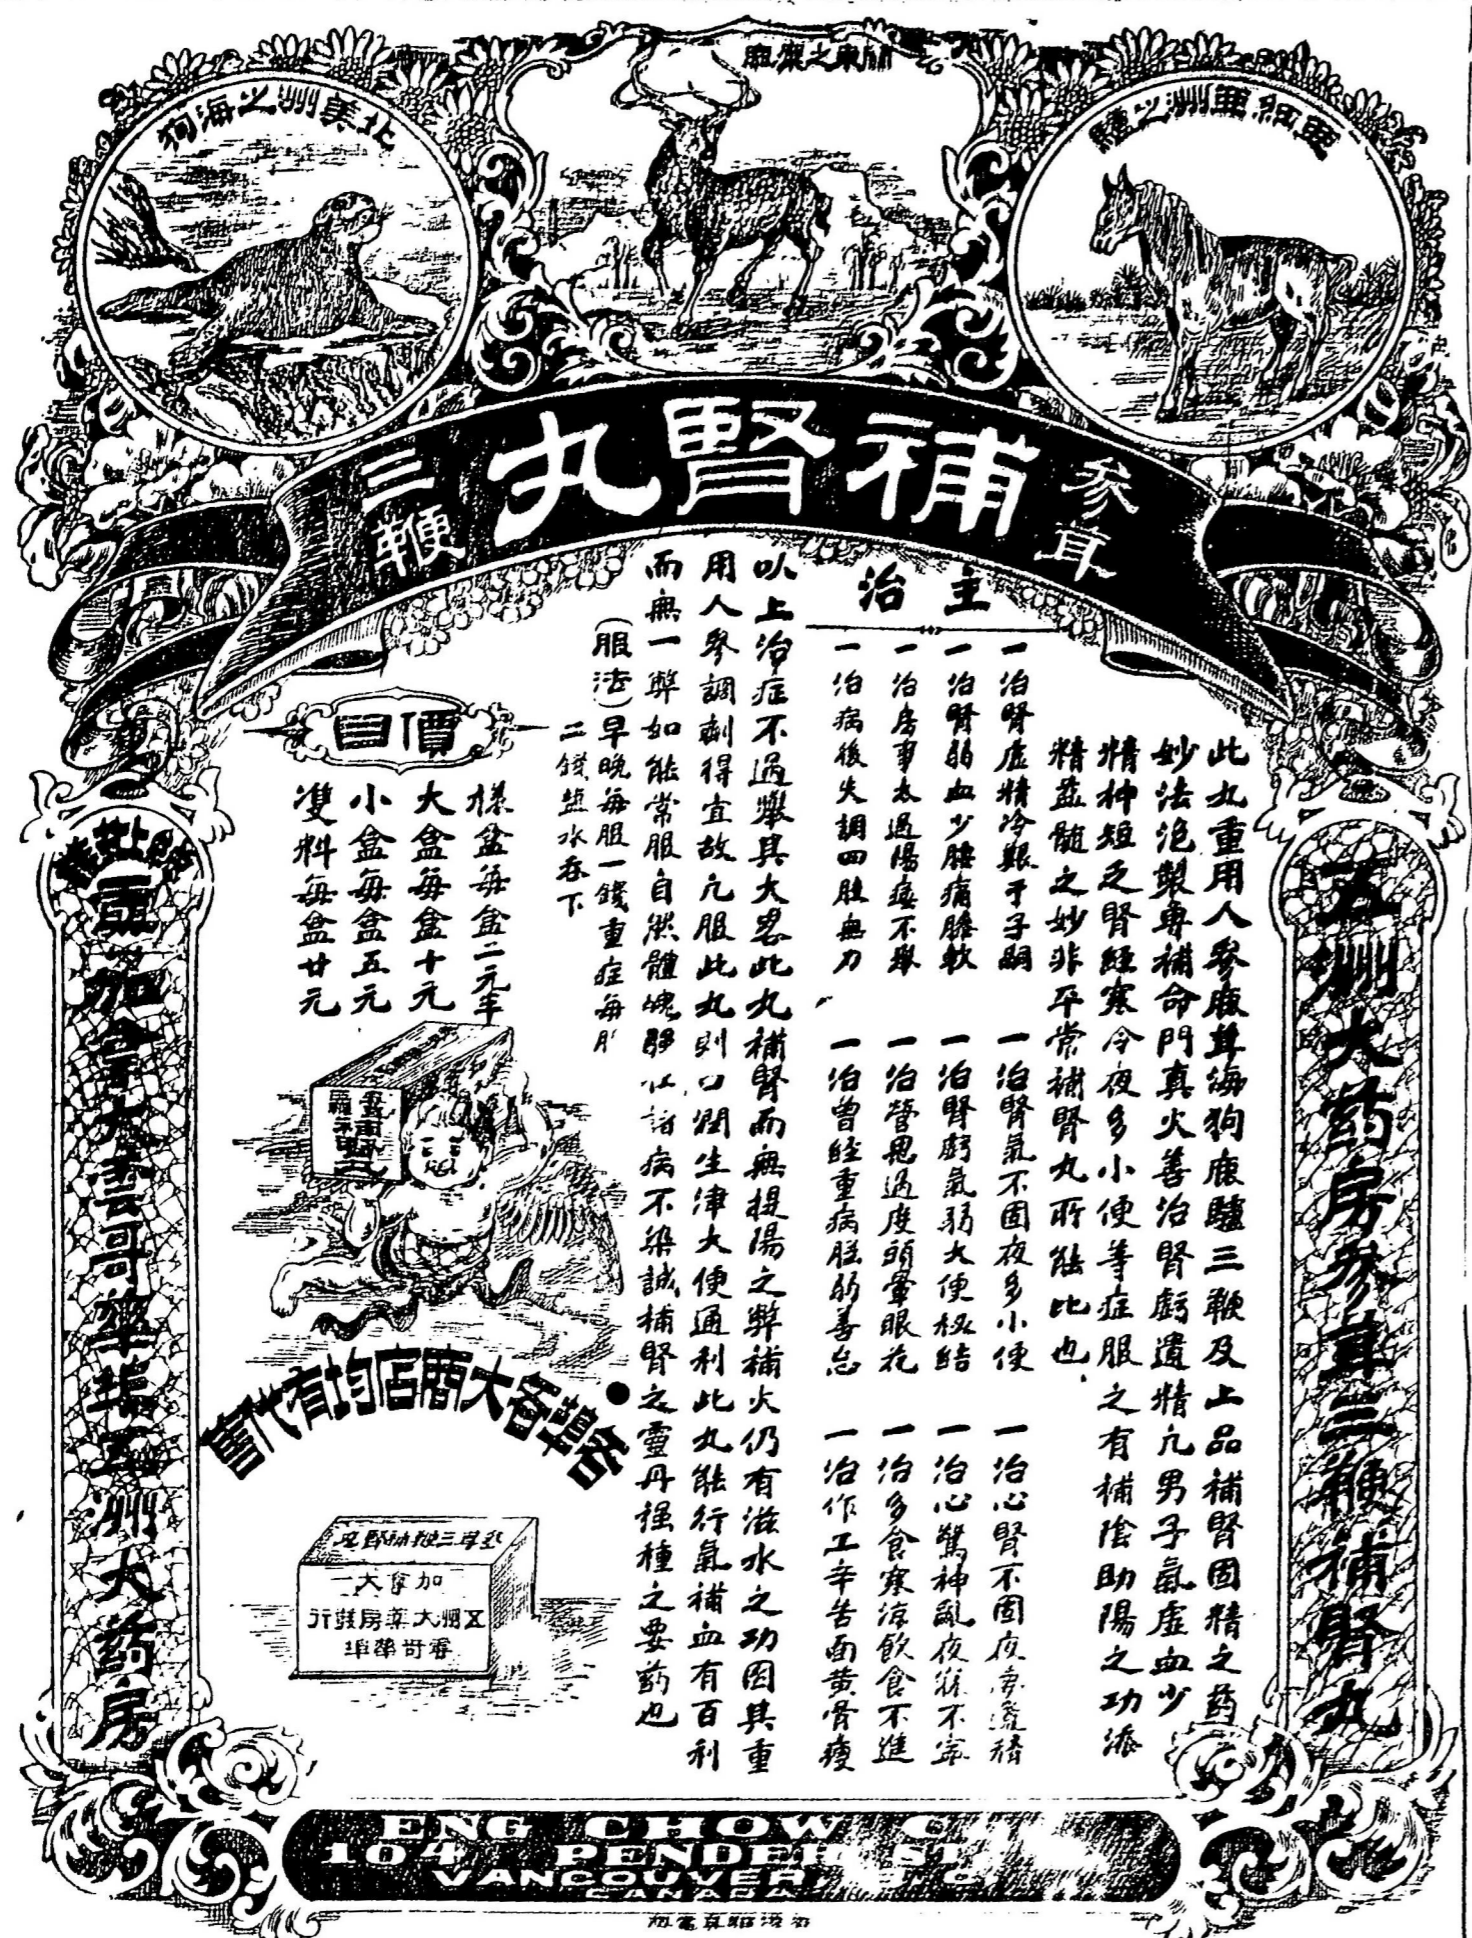 關東之麋鹿
北美洲之海狗
東細亜洲之驢
參茸
補腎丸
三鞭
五洲大药房參茸三鞭補腎丸
此丸重用人參鹿茸海狗鹿驢三鞭及上品補腎固精之药
妙法泡製專補命門真火善治腎虧遺精凢男子氣虛血少
精神短乏腎經寒冷夜多小便等症服之有補陰助陽之功添
精益髓之妙非平常補腎丸所能比也
主治
一治腎虛精冷艱于子嗣
一治腎氣不固夜多小便
一治心腎不固夜夢遺精
一治腎弱血少腰痛膽軟
一治腎虧氣弱大便秘結
一治心驚神亂夜寐不寧
一治房事太過陽痿不舉
一治營思過度頭暈眼花
一治多食寒涼飲食不進
一治病後失調四肢無力
一治曾經重病胆弱善忘
一治作工辛苦面黄骨瘦
以上治症不過舉其大畧此丸補腎而無提陽之弊補火仍有滋水之功因其重
用人參調劑得宜故凢服此丸則口潤生津大便通利此丸能行氣補血有百利
而無一弊如能常服自然體魄強壯諸病不染誠補腎之靈丹強種之要药也
(服法)早晚每服一錢重症每服
二錢盐水吞下
價目
樣盒每盒二元半
大盒每盒十元
小盒每盒五元
雙料每盒廿元
參茸三鞭補腎丸
各埠各大商店均有代售
參茸三鞭補腎丸
加拿大
五洲大藥房發行
雲哥華埠
加拿大雲哥華埠五洲大药房
ENG CHOW
104 PENDER ST
VANCOUVER, B.C.
CANADA